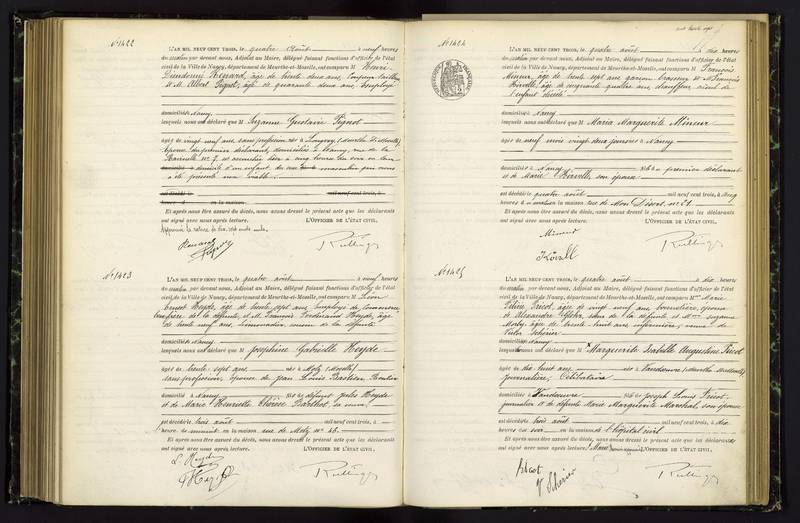 N° 1422
L'AN MIL NEUF CENT TROIS, le quatre Août à neuf heures
du matin par devant nous, Adjoint au Maire, délégué faisant fonctions d'officier de l'état
civil de la Ville de Nancy, département de Meurthe-et-Moselle, ont comparu M Henri
Renard, âgé de trente deux ans,
et M. Albert Pignot, âgé de quarante deux ans employé
domiciliés à Nancy
lesquels nous ont déclaré que M Suzanne Gustavie Pignot
âgée de vingt neuf ans, sans profession, née à Longwy (Meurthe et Moselle)
épouse du premier déclarant, domiciliée à Nancy, rue de la
N° 7, est accouchée hier à cinq heures du soir en son
domicile d'un enfant du sexe masculin qui nous
a été présenté sans vie.
mil neuf cent trois, à
heures en la maison
Et après nous être assuré du décès, nous avons dressé le présent acte que les déclarants
ont signé avec nous après lecture. L'OFFICIER DE L'ÉTAT CIVIL,
Renard
N° 1423
L'AN MIL NEUF CENT TROIS, le quatre août à neuf heures
du matin par devant nous, Adjoint au Maire, délégué faisant fonctions d'officier de l'état
civil de la Ville de Nancy, département de Meurthe-et-Moselle, ont comparu M. Léon
Ernest Heyde, âgé de trente sept ans, employé de commerce
frère de la défunte, et M. François Ferdinand Heyde, âgé
de trente neuf ans, limonadier, cousin de la défunte
domiciliés à Nancy
lesquels nous ont déclaré que M Joséphine Gabrielle Heyde
âgée de trente sept ans née à Metz (Moselle)
sans profession, épouse de Jean Louis Bastien
domiciliée à Nancy fille de défunt Jules Heyde
et de Marie Henriette Thérèse Barthol, sa veuve
est décédée trois août mil neuf cent trois, à
heures de en la maison rue de Metz n° 48.
Et après nous être assuré du décès, nous avons dressé le présent acte que les déclarants
ont signé avec nous après lecture. L'OFFICIER DE L'ÉTAT CIVIL,
L. Heyde
F Heyde
N° 1424
L'AN MIL NEUF CENT TROIS, le quatre août à dix heures
du matin par devant nous, Adjoint au Maire, délégué faisant fonctions d'officier de l'état
civil de la Ville de Nancy, département de Meurthe-et-Moselle, ont comparu M François
Mineur, âgé de trente sept ans garçon brasseur et M François
âgé de cinquante quatre ans, chauffeur aïeul de
l'enfant décédé
domiciliés à Nancy
lesquels nous ont déclaré que M Maria Marguerite Mineur
âgée de neuf mois vingt deux jours née à Nancy
domiciliée à Nancy fille du premier déclarant
et de Marie son épouse
est décédée quatre août mil neuf cent trois, à cinq
heures du matin en la maison rue de Mon Désert n° 21.
Et après nous être assuré du décès, nous avons dressé le présent acte que les déclarants
ont signé avec nous après lecture. L'OFFICIER DE L'ÉTAT CIVIL,
Mineur
N° 1425
L'AN MIL NEUF CENT TROIS, le quatre août à dix heures
du matin par devant nous, Adjoint au Maire, délégué faisant fonctions d'officier de l'état
civil de la Ville de Nancy, département de Meurthe-et-Moselle, ont comparu Mme Marie
Céline Tricot, âgée de vingt neuf ans, journalière, épouse
de Alexandre sœur de la défunte et Mme Suzanne
âgée de trente huit ans infirmière, veuve de
Victor Schérier
domiciliés à Nancy
lesquels nous ont déclaré que M Marguerite Isabelle Augustine Tricot
âgée de dix huit ans née à Vandœuvre (Meurthe et Moselle)
journalière, Célibataire
domiciliée à Vandœuvre fille de Joseph Louis Tricot
journalier et de défunte Marie Marguerite Maréchal, son épouse
est décédée trois août mil neuf cent trois, à dix
heures du soir en la maison de l'hôpital civil
Et après nous être assuré du décès, nous avons dressé le présent acte que les déclarants
ont signé avec nous après lecture. L'OFFICIER DE L'ÉTAT CIVIL,
V Schérier